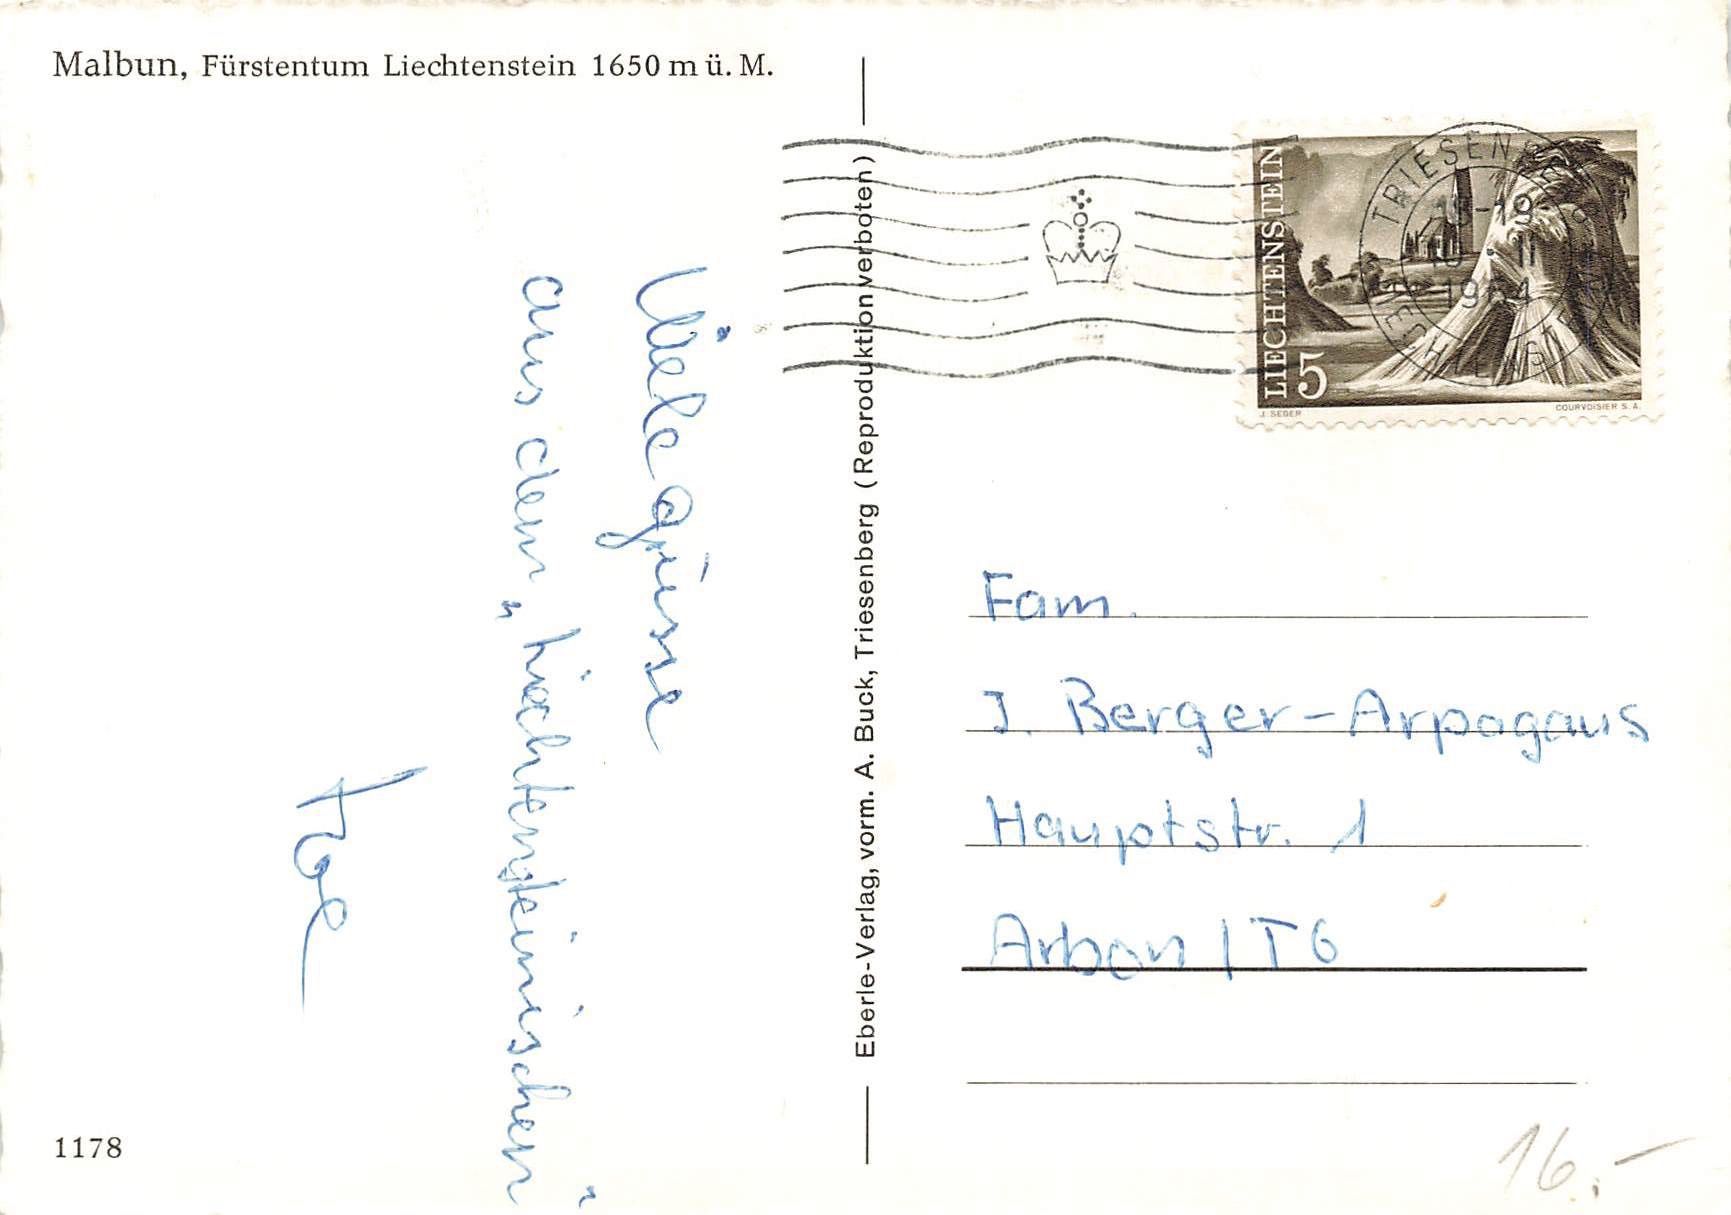 Malbun, Fürstentum Liechtenstein 1650 m ü. M.
Viele Grüsse
aus dem „Liechtensteinischen"
1178
Eberle-Verlag, vorm. A. Buck, Triesenberg (Reproduktion verboten)
LIECHTENSTEIN
5
J. SEGER
COURVOISIER S. A.
Fam.
J. Berger-Arpagaus
Hauptstr. 1
Arbon / TG
16.-